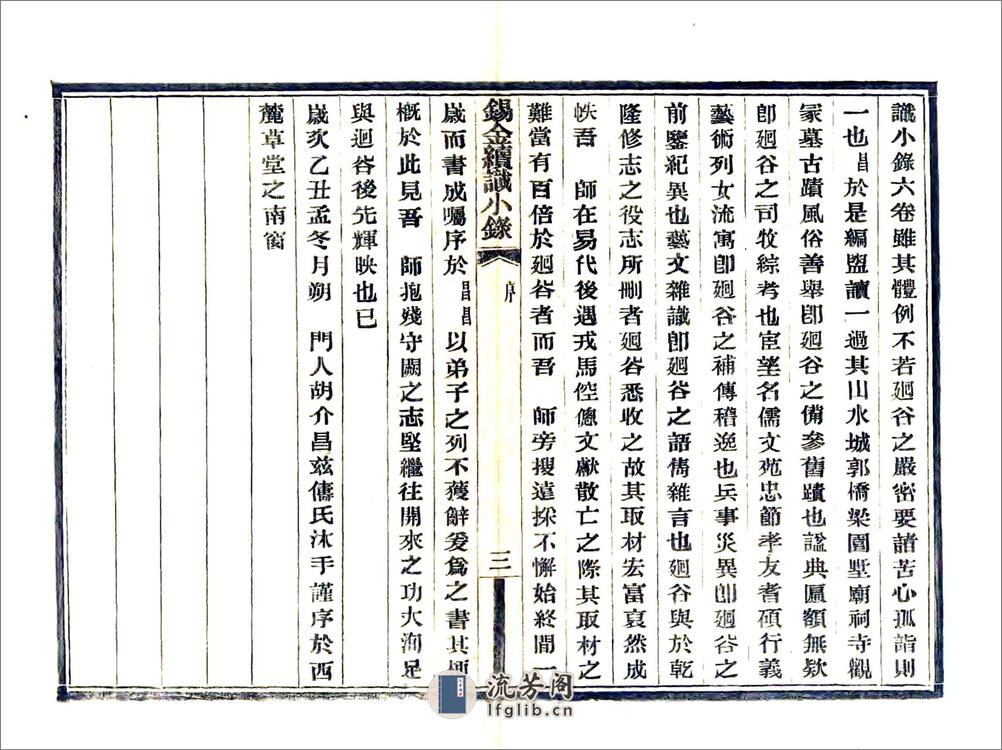 識小錄六卷雖其體例不若廻谷之嚴密要諸苦心孤詣則
一也昌於是編盥讀一過其山水城郭橋梁園墅廟祠寺觀
冢墓古蹟風俗善舉卽廻谷之備參舊蹟也謚典匾額無欵
卽廻谷之司牧綜考也宦望名儒文苑忠節孝友耆碩行義
藝術列女流寓卽廻谷之補傳稽逸也兵事災異卽廻谷之
前鑒紀異也藝文雜識卽廻谷之語雋雜言也廻谷與於乾
隆修志之役志所刪者廻谷悉收之故其取材宏富裒然成
帙吾 師在易代後遇戎馬倥傯文獻散亡之際其取材之
難當有百倍於廻谷者而吾 師旁搜遠採不懈始終閱一
錫金續識小錄 序 三
歲而書成囑序於昌昌 以弟子之列不獲辭爰爲之書其梗
槪於此見吾 師抱殘守闕之志堅繼往開來之功大洵足
與廻谷後先輝映也已
歲次乙丑孟冬月朔 門人胡介昌茲儔氏沐手謹序於西
麓草堂之南窗
流芳阁
lfglib.cn